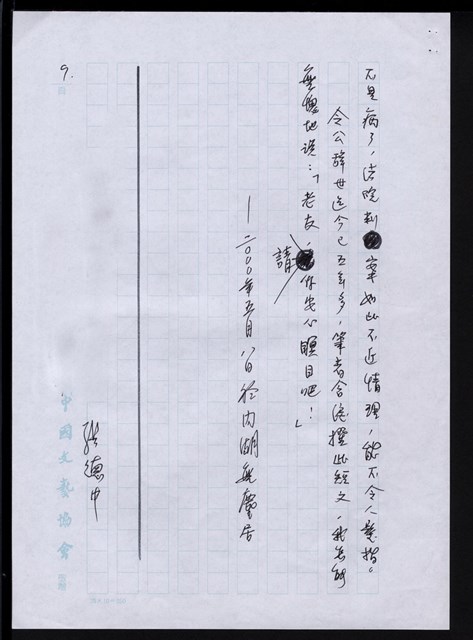 不是病了，法院判案如此不近情理，能不令人髮指。
令公辭世迄今已五年多，筆者含淚撰此短文，我怎能
無愧地說：「老友，請你安心瞑目吧！」
—二○○○年五月八日於內湖無塵居
張德中
9.
中國文藝協會